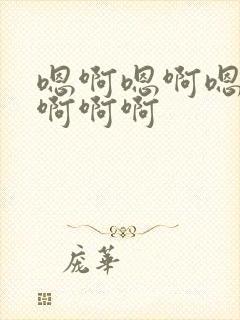 嗯啊嗯啊嗯
啊啊啊
庞华